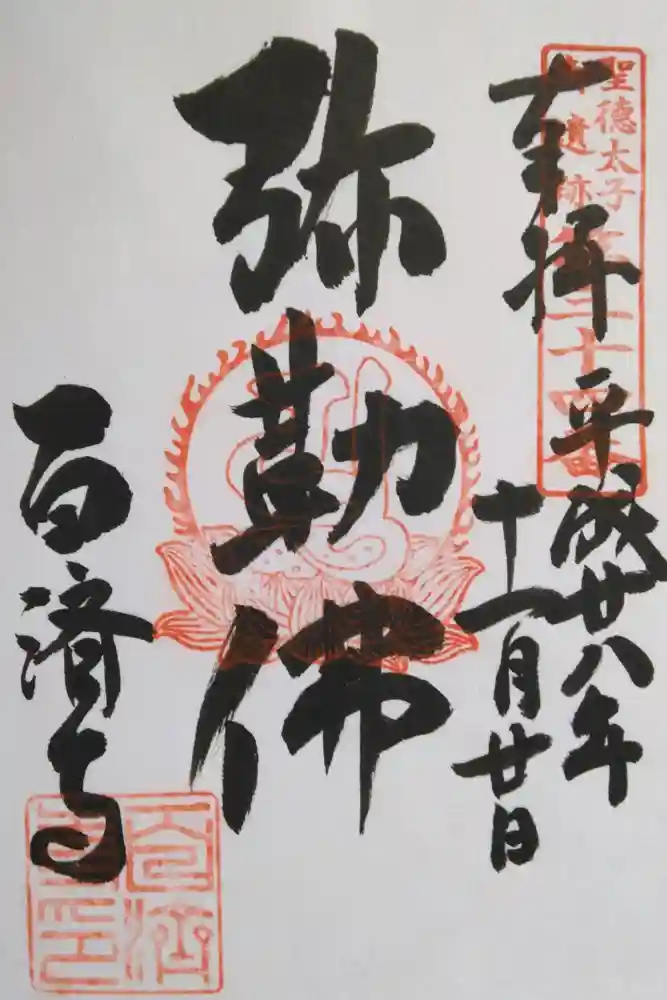 聖徳太子
御遺跡
第三十四番
奉拝
平成廿八年
十一月廿日
弥勒佛
百済寺
百済
寺印